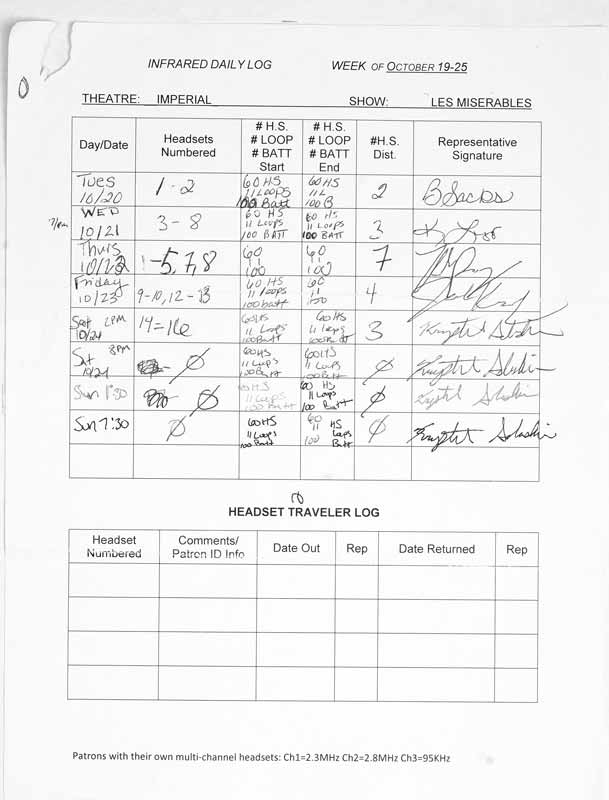 INFRARED DAILY LOG WEEK OF OCTOBER 19-25
THEATRE: IMPERIAL SHOW: LES MISERABLES
Day/Date Headsets Numbered # H.S. # LOOP # BATT Start # H.S. # LOOP # BATT End #H.S. Dist. Representative Signature
Tues 10/20 1-2 60 HS 11 Loops 100 Batt 60 HS 11 L 100 B 2 B Sacks
7pm WED 10/21 3-8 60 HS 11 Loops 100 BATT 60 HS 11 Loops 100 BATT 3
Thurs 10/22 1-5, 7, 8 60 11 100 60 11 100 7
Friday 10/23 9-10, 12-13 60 HS 11 loops 100 batt 60 11 100 4
Sat 2PM 10/24 14-16 60 HS 11 Loops 100 Batt 60 HS 11 Loops 100 Batt 3
Sat 8PM 10/24 Ø 60 HS 11 Loops 100 Batt 60 HS 11 Loops 100 Batt Ø
Sun 1:30 Ø 60 HS 11 Loops 100 Batt 60 HS 11 Loops 100 Batt Ø
Sun 7:30 Ø 60 HS 11 Loops 100 Batt 60 HS 11 Loops 100 Batt Ø
HEADSET TRAVELER LOG
Headset Numbered Comments/ Patron ID Info Date Out Rep Date Returned Rep
Patrons with their own multi-channel headsets: Ch1=2.3MHz Ch2=2.8MHz Ch3=95KHz